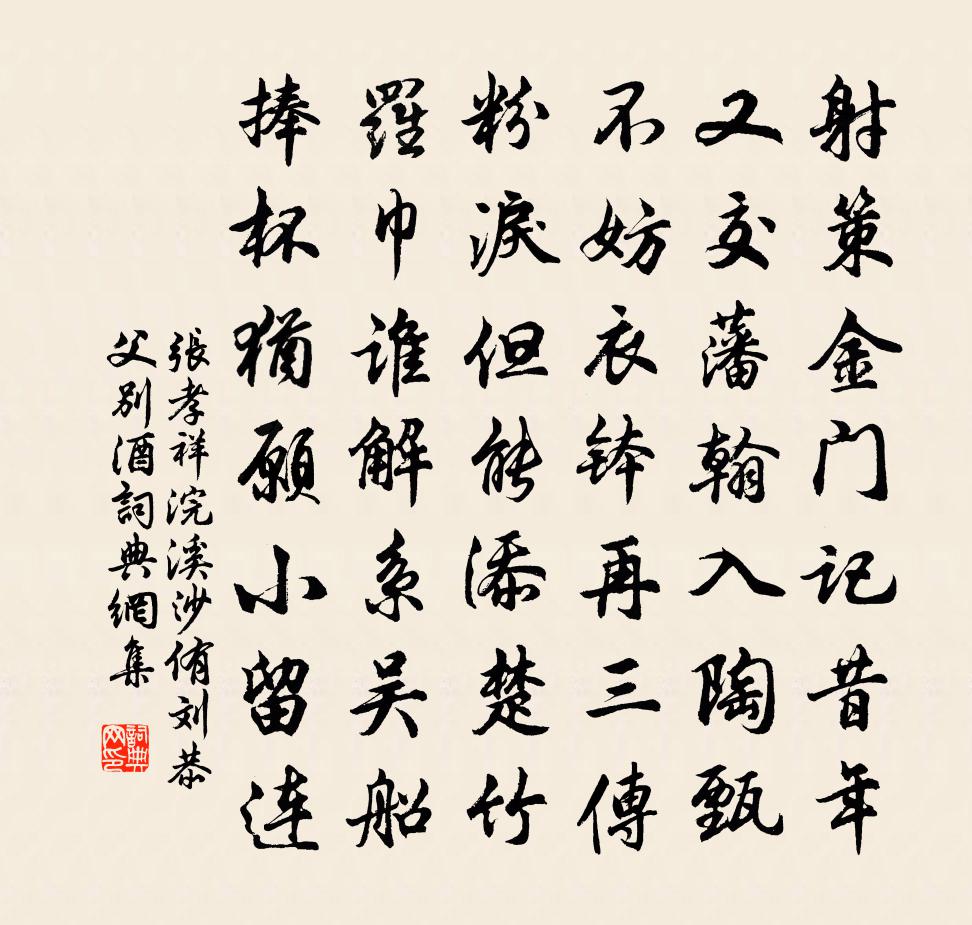 射策金門記昔年
又交藩翰入陶甄
不妨衣鉢再三傳
粉淚但能添楚竹
羅巾誰解系吴船
捧杯猶願小留連
張孝祥浣溪沙侑刘恭
父别酒詞典網集
詞典网印